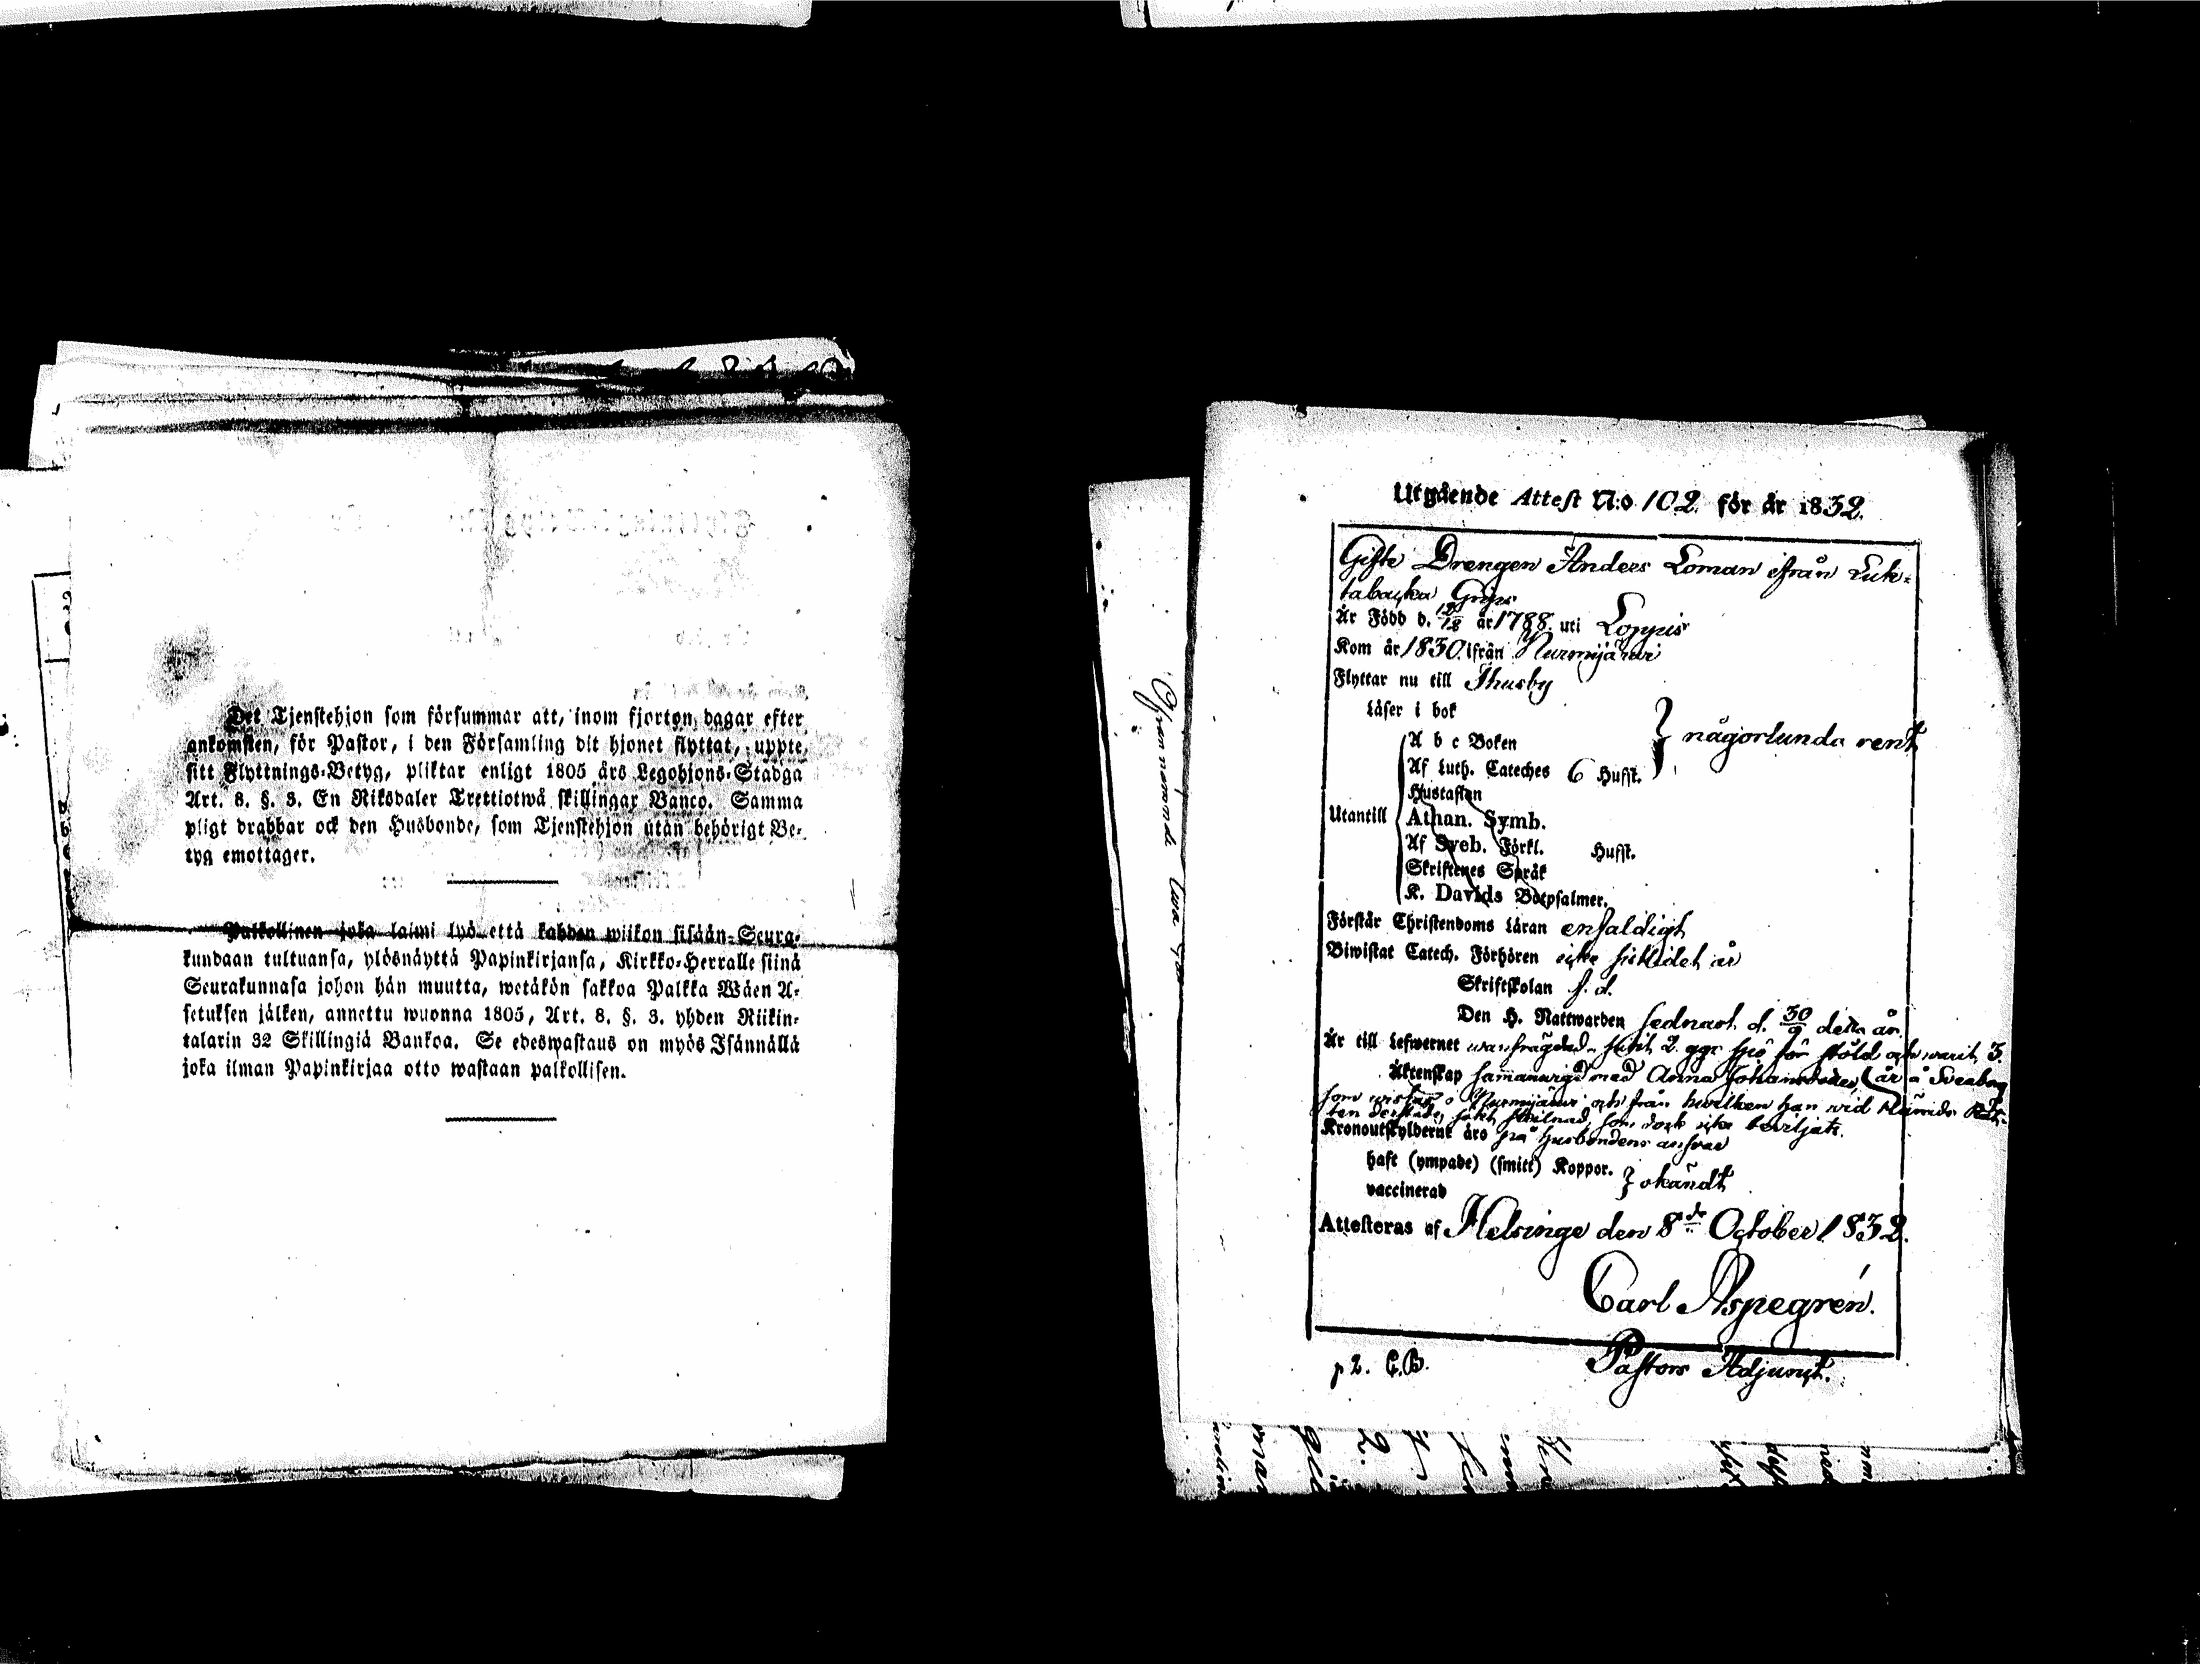 Det Tjenstehjon som försummar att, inom fjorton dagar efter
ankomsten, för Pastor, i den Församling dit hjonet flyttat, uppte
sitt Flyttnings-Betyg, pliktar enligt 1805 års Legohjons-Stadga
Art. 8. §. 3. En Riksdaler Trettiotwå skillingar Banco. Samma
pligt drabbar ock den Husbonde, som Tjenstehjon utan behörigt Be-
tyg emottager.
Palkollinen joka laimi lyö että kahden wiikon sisään Seura-
kundaan tultuansa, ylösnäyttä Papinkirjansa, Kirkko-Herralle siinä
Seurakunnasa johon hän muutta, wetäkön sakkoa Palkka Wäen A-
setuksen jälken, annettu wuonna 1805, Art. 8. §. 3. yhden Riikin-
talarin 32 Skillingiä Bankoa. Se edeswastaus on myös Isännällä
joka ilman Papinkirjaa otto wastaan palkollisen.
Utgående Attest N:o 102 för år 1832.
Gifte Drengen Anders Loman ifrån Luk-
tabacka Grips
År Född d. 12/12 år 1788 uti Loppis
Kom år 1830. ifrån Nurmijärvi
Flyttar nu till Thusby
Läser i bok
} någorlunda rent
A b c Boken
Af Luth. Cateches 6 Hufst.
Hustaflan
Utantill
Athan. Symb.
Af Sveb. Förkl. Hufst.
Skriftenes Språk
K. Davids Botpsalmer.
Förstår Christendoms Läran enfaldigt
Biwistat Catech. Förhören icke sistlidet år
Skriftskolan f. d.
Den H. Nattwarden sednast d. 30/9 detta år
År till Lefwernet wanfrägdad, sutit 2 ggr för stöld och warit 3
Äktenskap sammanvigd med Anna (år å Sveaborg
som wistas i Nurmijärvi och från hwilken han wid
ten derstädes sökt skilnad, som dock icke beviljats.
Kronoutskylderne äro på husbondens answar
haft (ympade) (smitt) Koppor. } okändt
vaccinerad
Attesteras af Helsinge den 8de October 1832.
Carl Aspegrén.
Pastors Adjunct.
p 2. C.B.